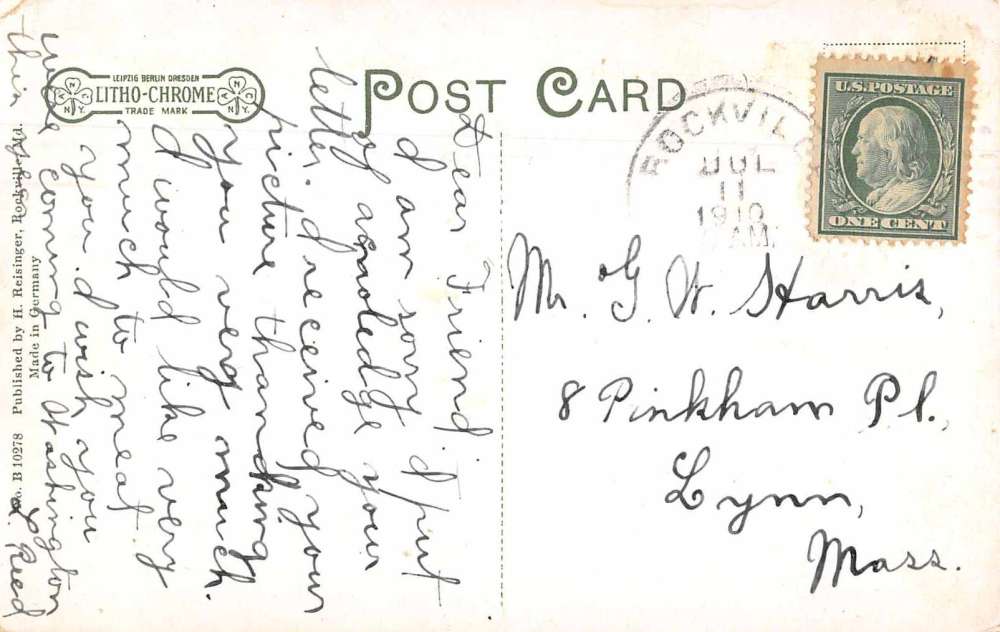 LEIPZIG BERLIN DRESDEN
LITHO-CHROME
TRADE MARK
A N C N.Y.
A N C N.Y.
POST CARD
ROCKVIL
JUL
11
1910
AM
U.S. POSTAGE
ONE CENT
Dear Friend.
I am sorry I put
of acnoledge your
letter. I received your
picture thanking
you very much.
I would like very
much to meat
you. I wish you
were coming to Washington
this L. Reed
Mr. G. W. Harris,
8 Pinkham Pl.,
Lynn,
Mass.
No. B 10278 Published by H. Reisinger, Rockville, Md.
Made in Germany